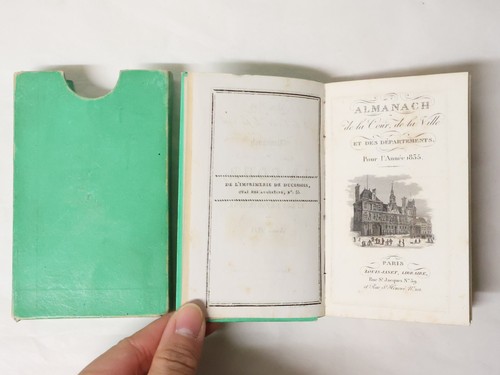 DE L'IMPRIMERIE DE DUCESSOIS,
ALMANACH
de la Cour, de la Ville
ET DES DÉPARTEMENTS,
Pour l'Année 1835
PARIS
LOUIS JANET, LIBRAIRE,
Rue St Jacques No 59